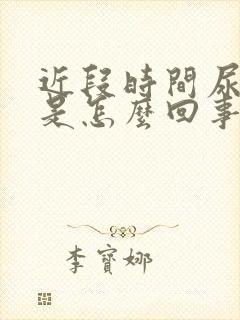 近段時間尿
是怎麼回事
李寶娜